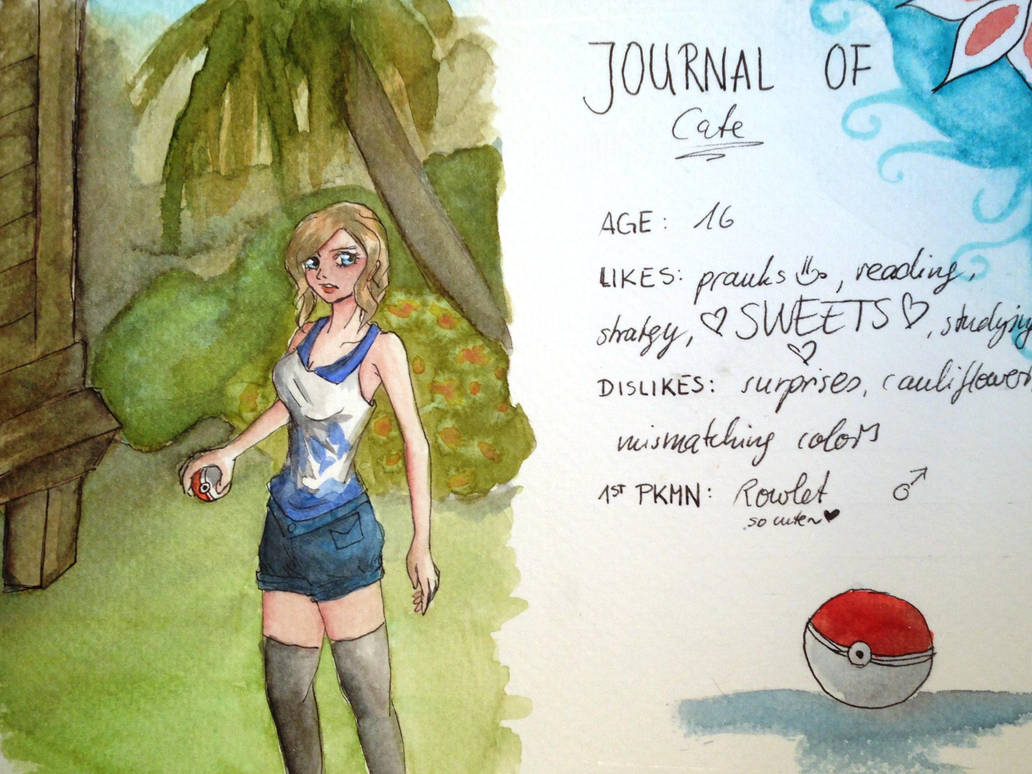 JOURNAL OF
Cate
AGE: 16
LIKES: pranks, reading,
strategy, ♡ SWEETS ♡, studying
DISLIKES: surprises, cauliflower
mismatching colors
1ST PKMN: Rowlet ♂
so cute~♥